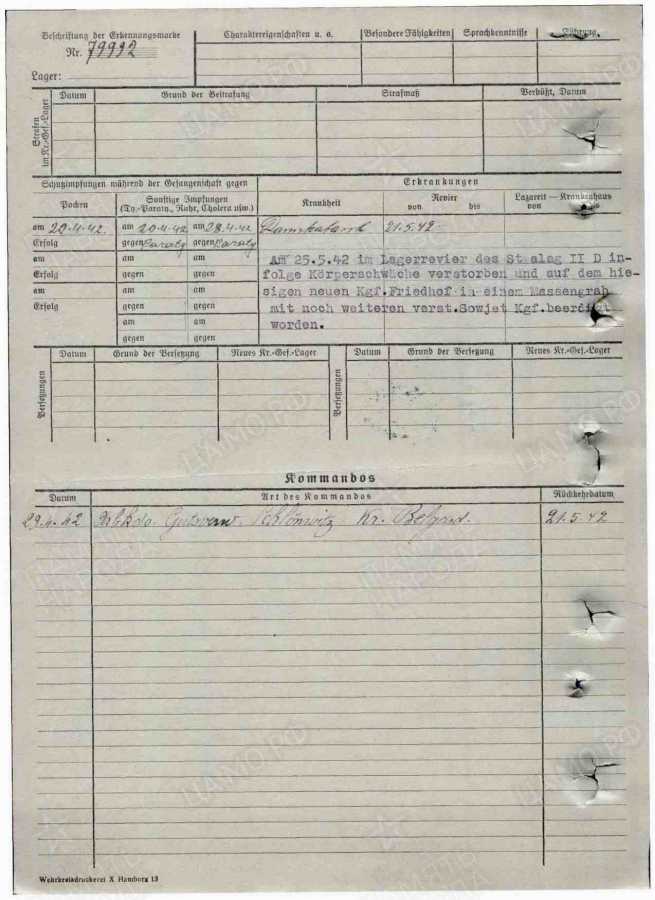 Beschriftung der Erkennungsmarke
Nr. 79992
Lager:
Charaktereigenschaften u. a.
Besondere Fähigkeiten
Sprachkenntnisse
Führung
Strafen
im Kr.-Gef.-Lager
Datum Grund der Bestrafung Strafmaß Verbüßt, Datum
Schutzimpfungen während der Gefangenschaft gegen
Erkrankungen
Pocken
Sonstige Impfungen
(Ty.-Paraty., Ruhr, Cholera usw.)
Krankheit
Revier
von bis
Lazarett – Krankenhaus
von
am 20.4.42. am 20.4.42 am 28.4.42 21.5.42
Erfolg gegen Paraty gegen Paraty
am am am
Erfolg gegen gegen
am am am
Erfolg gegen gegen
am am
gegen gegen
Am 25.5.42 im Lagerrevier des Stalag II D in-
folge Körperschwäche verstorben und auf dem hie-
sigen neuen Kgf.Friedhof in einem Massengrab
mit noch weiteren verst.Sowjet Kgf.beerdigt
worden.
Versetzungen
Datum Grund der Versetzung Neues Kr.-Gef.-Lager
Versetzungen
Datum Grund der Versetzung Neues Kr.-Gef.-Lager
Kommandos
Datum Art des Kommandos Rückkehrdatum
29.4.42 Arb.Kdo. Gutsverw. Kr. Belgard. 21.5.42
Wehrkreisdruckerei X Hamburg 13
ЦАМО РФ
ПАМЯТЬ
НАРОДА